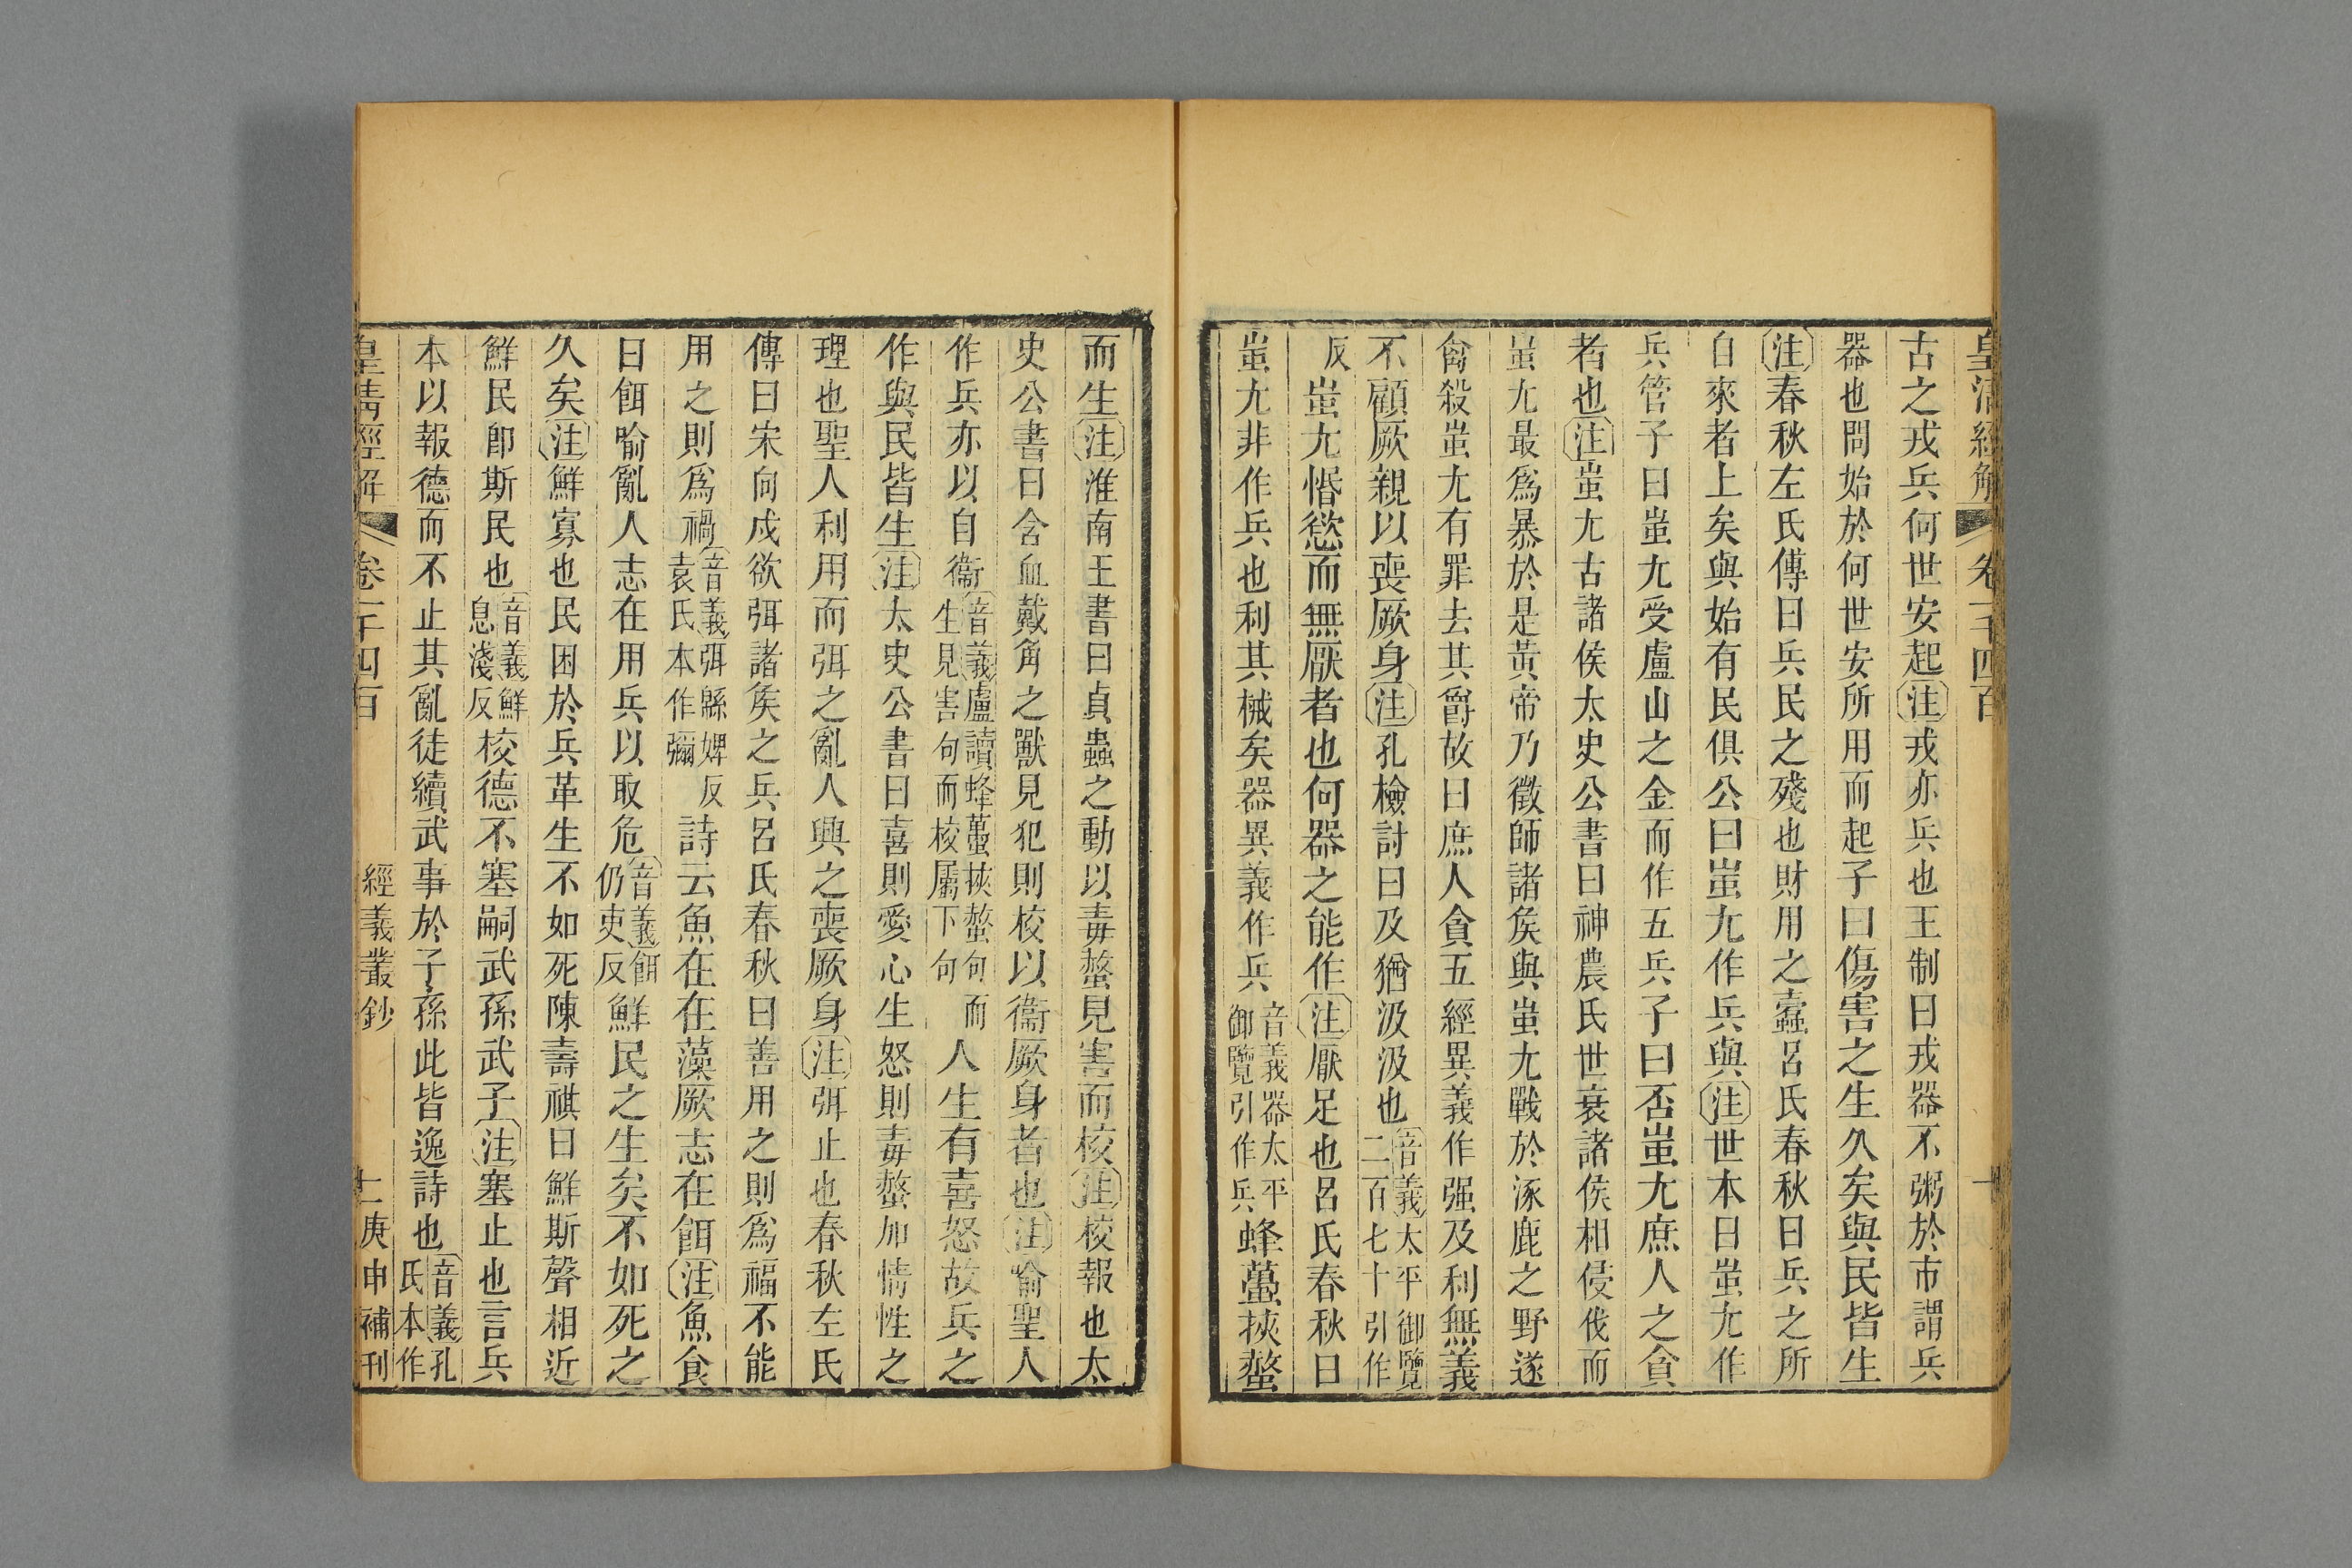 皇清經解 卷一千四百 十
古之戎兵何世安起注戎亦兵也王制曰戎器不粥於市謂兵
器也問始於何世安所用而起子曰傷害之生久矣與民皆生
注春秋左氏傳曰兵民之殘也財用之蠹呂氏春秋曰兵之所
自來者上矣與始有民俱公曰蚩尤作兵與注世本曰蚩尤作
兵管子曰蚩尤受盧山之金而作五兵子曰否蚩尤庶人之貪
者也注蚩尤古諸侯太史公書曰神農氏世衰諸侯相侵伐而
蚩尤最爲暴於是黃帝乃徵師諸矦與蚩尤戰於涿鹿之野遂
禽殺蚩尤有罪去其爵故曰庶人貪五經異義作强及利無義
不顧厥親以喪厥身注孔檢討曰及猶汲汲也音義太平御覽二百七十引作
反蚩尤惛慾而無厭者也何器之能作注厭足也呂氏春秋曰
蚩尤非作兵也利其械矣器異義作兵音義器太平御覽引作兵蜂蠆挾螫
而生注淮南王書曰貞蟲之動以毒螫見害而校注校報也太
史公書曰含血戴角之獸見犯則校以衞厥身者也注喻聖人
作兵亦以自衞音義盧讀蜂蠆挾螫句而生見害句而校屬下句人生有喜怒故兵之
作與民皆生注太史公書曰喜則愛心生怒則毒螫加情性之
理也聖人利用而弭之亂人興之喪厥身注弭止也春秋左氏
傳曰宋向戌欲弭諸矦之兵呂氏春秋曰善用之則爲福不能
用之則爲禍音義弭緜婢反袁氏本作彌詩云魚在在藻厥志在餌注魚食
曰餌喻亂人志在用兵以取危音義餌仍吏反鮮民之生矣不如死之
久矣注鮮寡也民困於兵革生不如死陳壽祺曰鮮斯聲相近
鮮民卽斯民也音義鮮息淺反校德不塞嗣武孫武子注塞止也言兵
本以報德而不止其亂徒續武事於子孫此皆逸詩也音義孔氏本作
皇清經解 卷一千四百 經義叢鈔 十一 庚申補刊